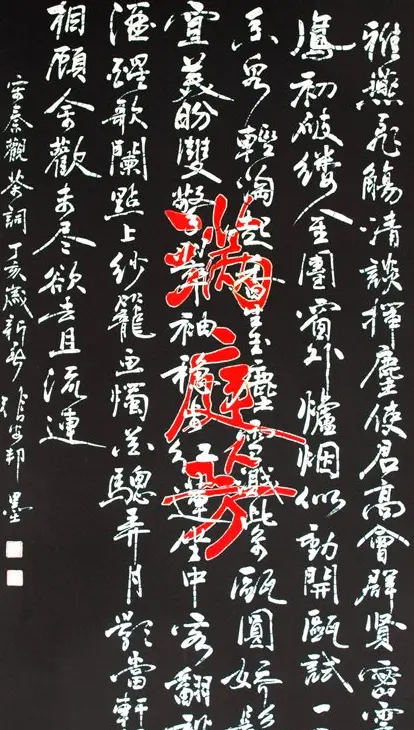 雅燕飛觴清談揮麈使君高會群賢密雲
鳳初破縷金團窗外爐烟似動開甌試一
泉輕淘起香生玉塵雪濺紫甌圓嬌鬟
宜美盼雙擎翠袖穩步紅蓮坐中客翻愁
酒醒歌闌點上紗籠画燭花驄弄月影當軒
相顧余歡未尽欲去且流連
宋秦觀茶詞丁亥歲新春邦墨
滿庭芳